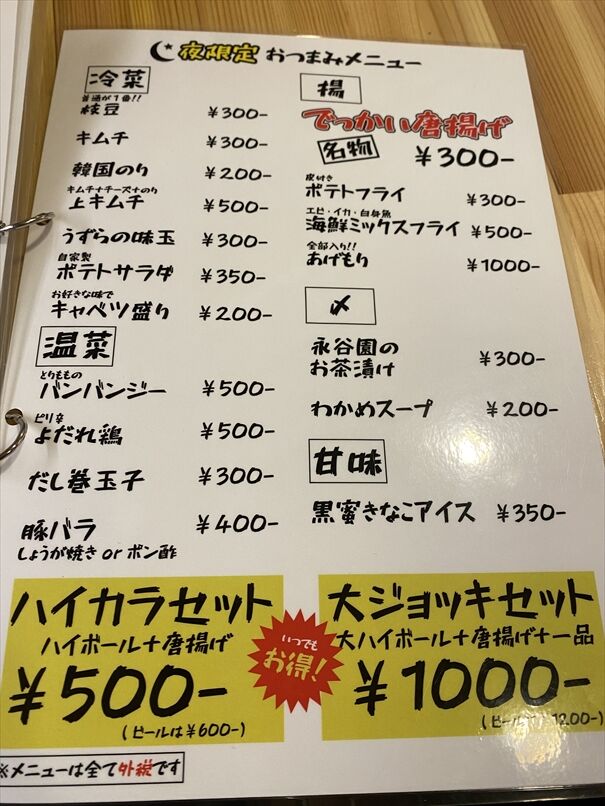 夜限定 おつまみメニュー
冷菜
普通が1番!!
枝豆 ¥300-
キムチ ¥300-
韓国のり ¥200-
キムチ+チーズ+のり
上キムチ ¥500-
うずらの味玉 ¥300-
自家製
ポテトサラダ ¥350-
お好きな味で
キャベツ盛り ¥200-
温菜
とりももの
バンバンジー ¥500-
ピリ辛
よだれ鶏 ¥500-
だし巻玉子 ¥300-
豚バラ ¥400-
しょうが焼き or ポン酢
揚
でっかい唐揚げ
名物 ¥300-
皮付き
ポテトフライ ¥300-
エビ・イカ・白身魚
海鮮ミックスフライ ¥500-
全部入り!!
あげもり ¥1000-
〆
永谷園の
お茶漬け ¥300-
わかめスープ ¥200-
甘味
黒蜜きなこアイス ¥350-
ハイカラセット
ハイボール+唐揚げ
¥500-
(ビールは¥600-)
いつでも
お得!
大ジョッキセット
大ハイボール+唐揚げ+一品
¥1000-
(ビール 1200-)
※メニューは全て外税です